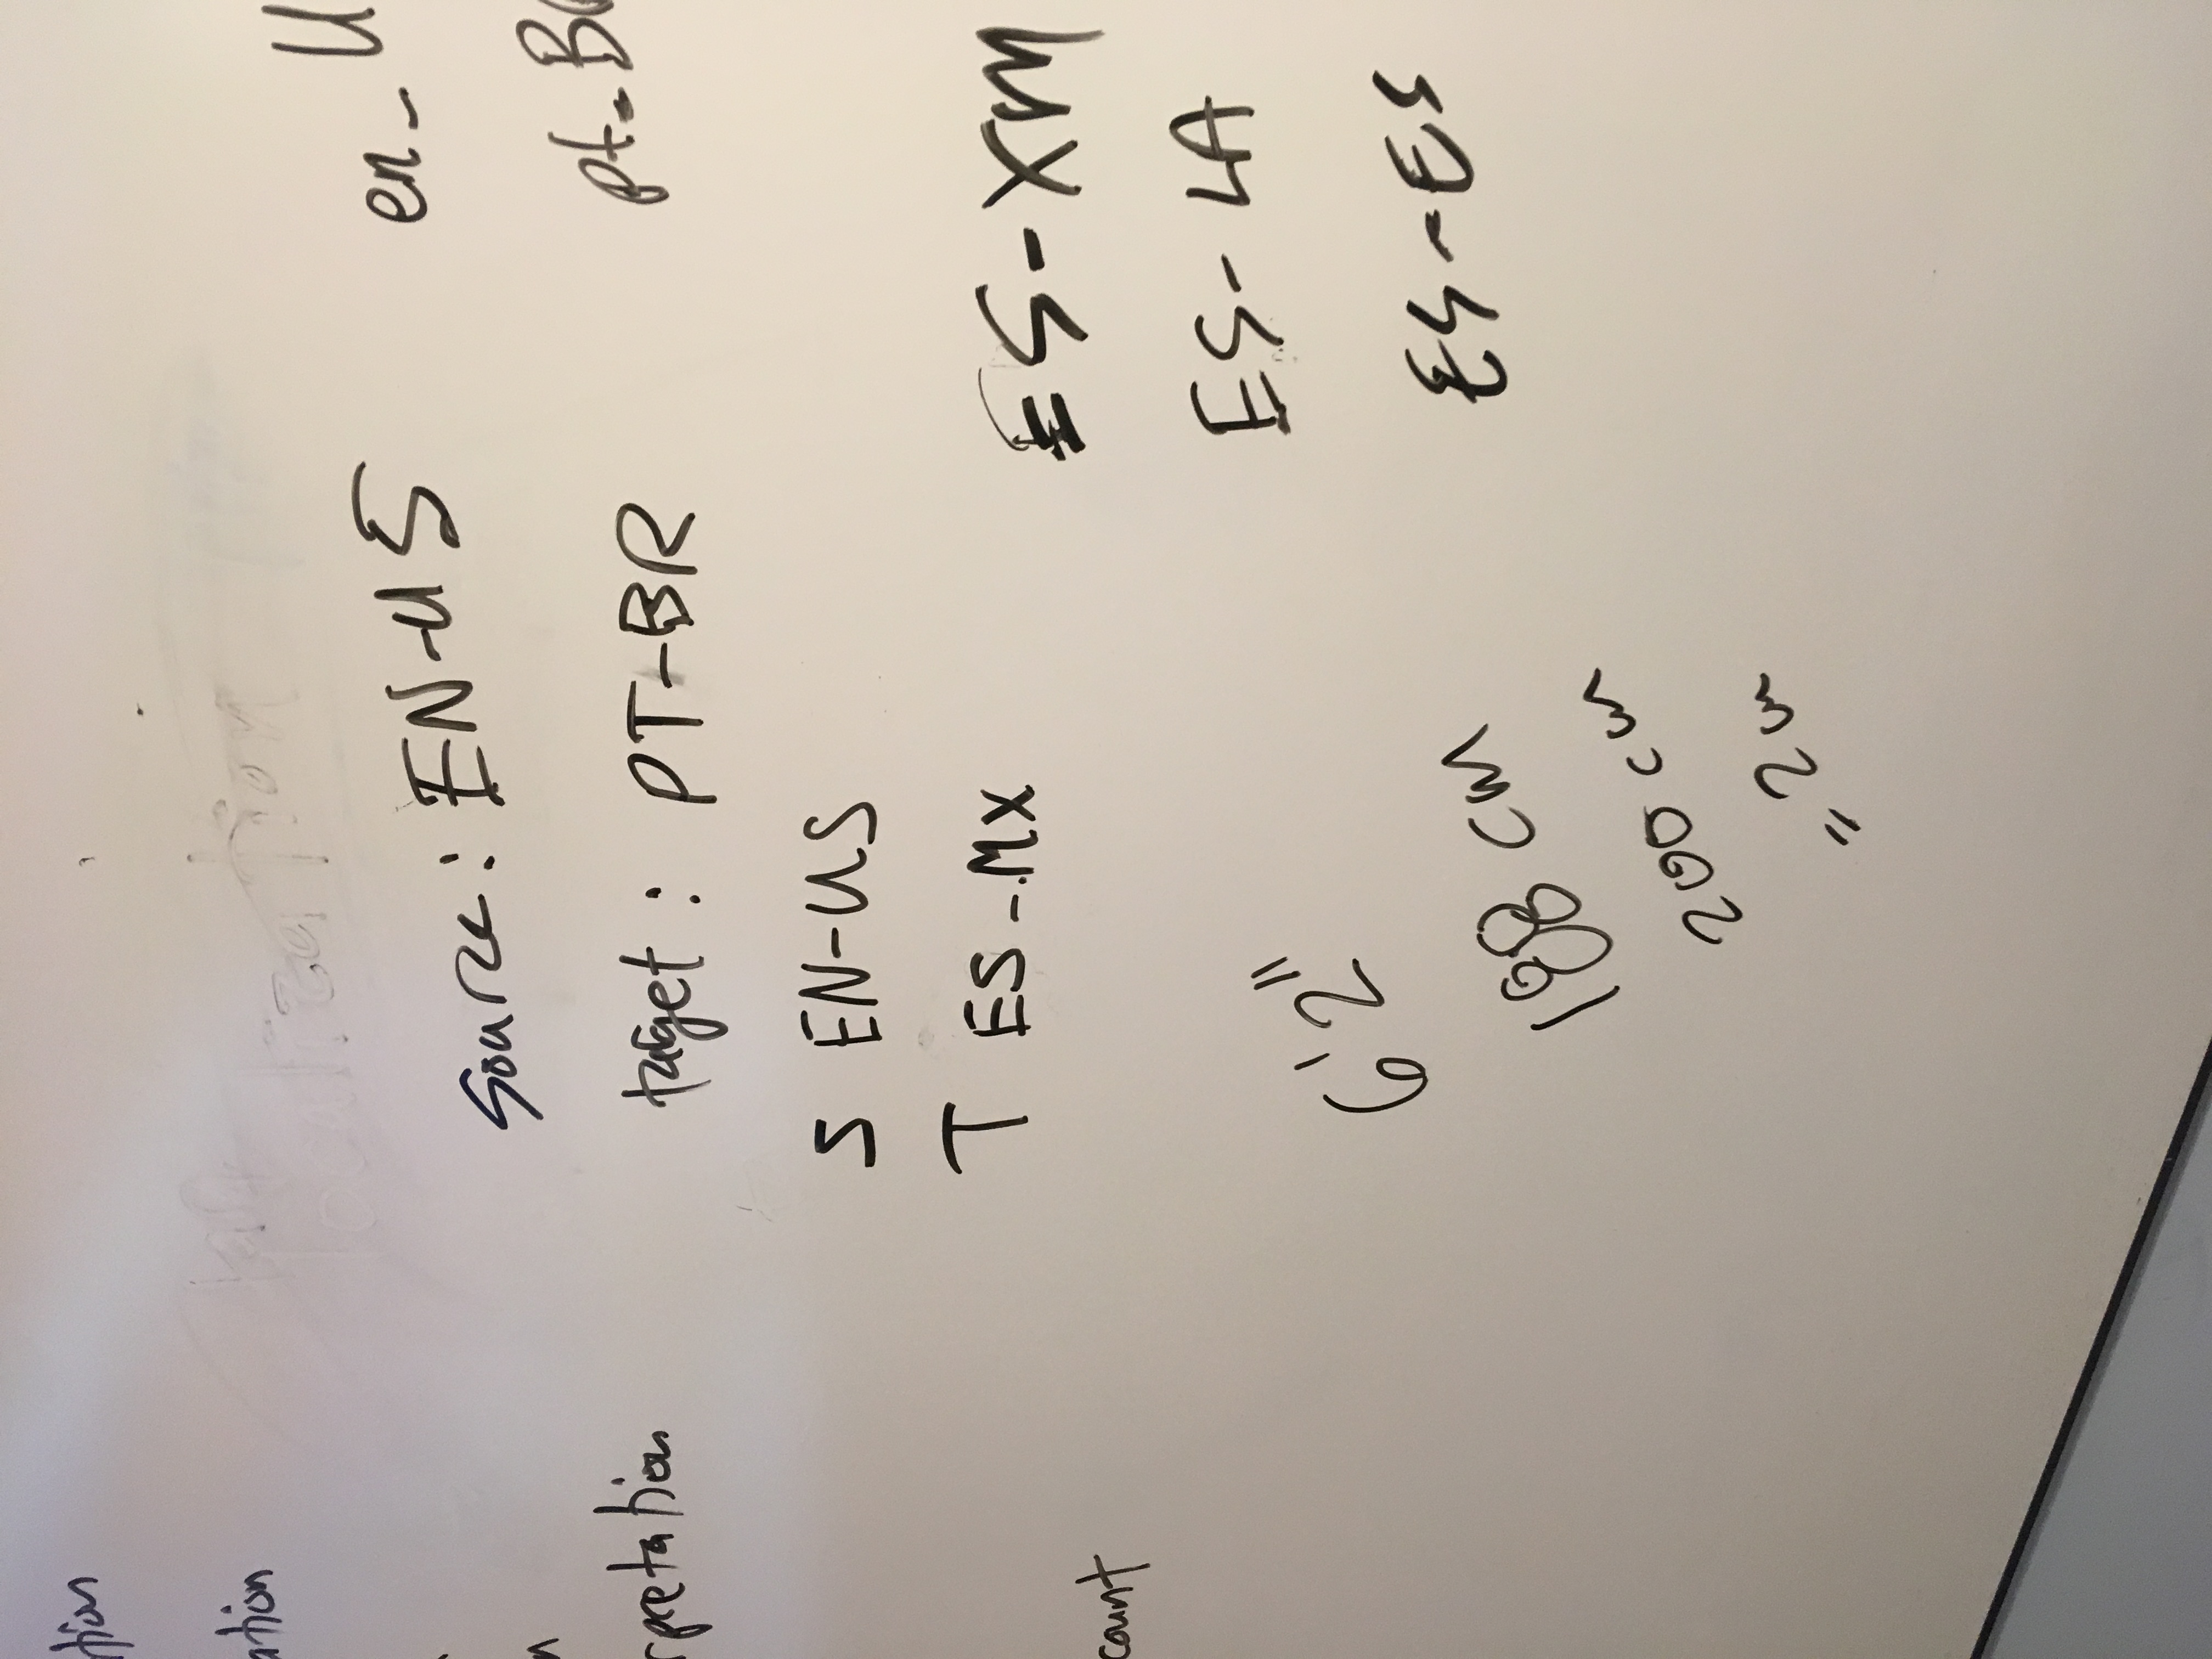 tion
ation
n
rpretation
count
Source: EN-US
target: PT-BR
S EN-US
T ES-MX
6'2"
188 cm
200 cm
" 2m
en-U
pt-B
ES-XM
ES-LA
ES-ES